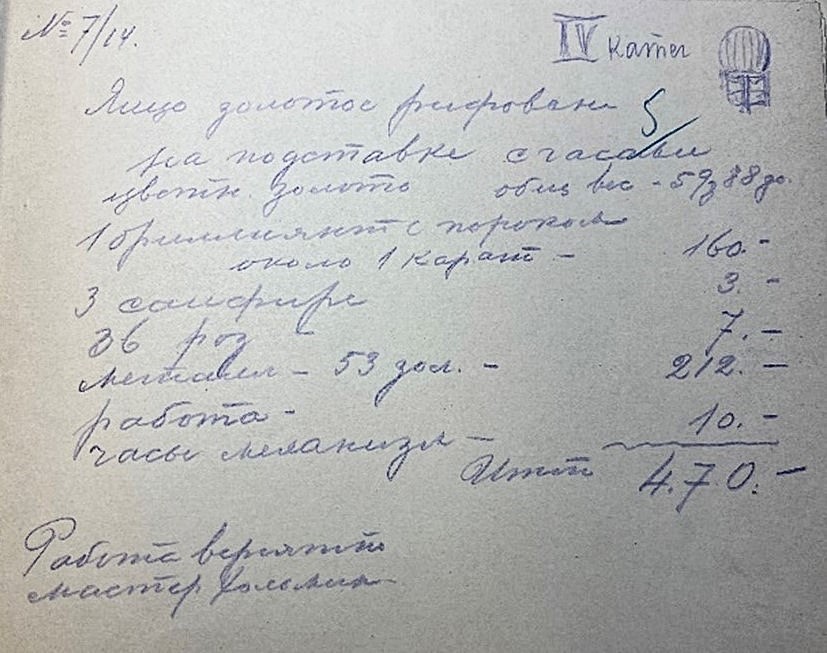 № 7/14.
IV камег
Яйцо золотое рифрован
5
на подставке с часами
цветн. золото общ вес - 59з 88 до.
1 бриллиянт с пороком
около 1 карат - 160.-
3 сапфира 3.-
36 роз - 7.-
металл - 53 зол. - 212.-
работа -
часы механизм - 10.-
Итого 4.7.0.-
Работа вероятно
мастер